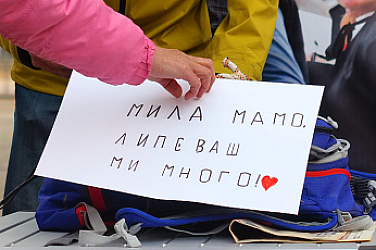 МИЛА МАМО,
ЛИПСВАШ
МИ МНОГО!